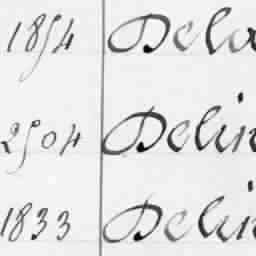 1854 Dela
2504 Delin
1833 Delin